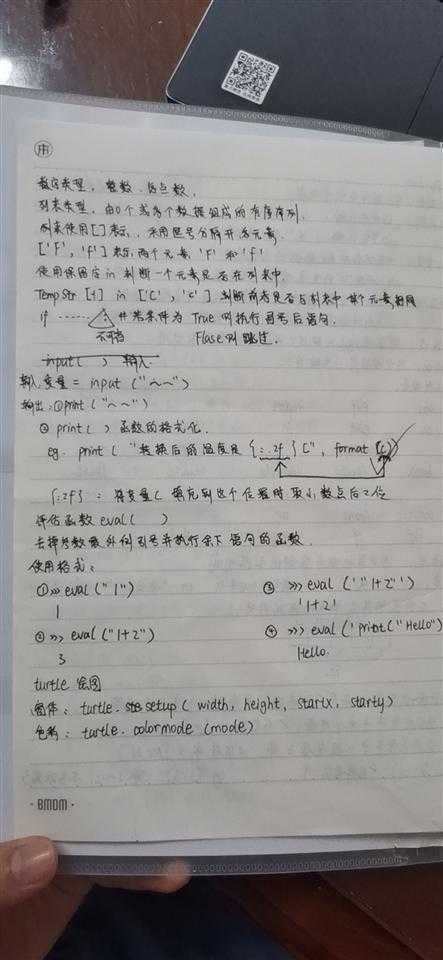 数字类型,整数,浮点数,
列表类型,由0个或多个数据组成的有序序列.
列表使用[]表示,采用逗号分隔开各元素.
['F','f']表示两个元素'F'和'f'
使用保留字in判断一个元素是否在列表中.
TempStr [-1] in ['C','c']判断前者是否与列表中某个元素相同
if ……… 件若条件为True则执行冒号后语句.
不可省 Flase则跳过.
input( ) 输入
输入变量 = input ("~~")
输出:①print("~~")
②print( )函数的格式化.
eg. print ( "转换后的温度是{:.2f}C", format (C))
{:2f}:将变量C填充到这个位置时取小数点后2位
评估函数eval( )
去掉参数最外侧引号并执行余下语句的函数.
使用格式:
①>>> eval("1")
1
②>>> eval("1+2")
3
③ >>> eval('"1+2"')
'1+2'
④ >>> eval('print("Hello")
Hello.
turtle绘图
窗体:turtle.setup( width, height, startx, starty)
色彩:turtle.colormode (mode)
- BMDM -